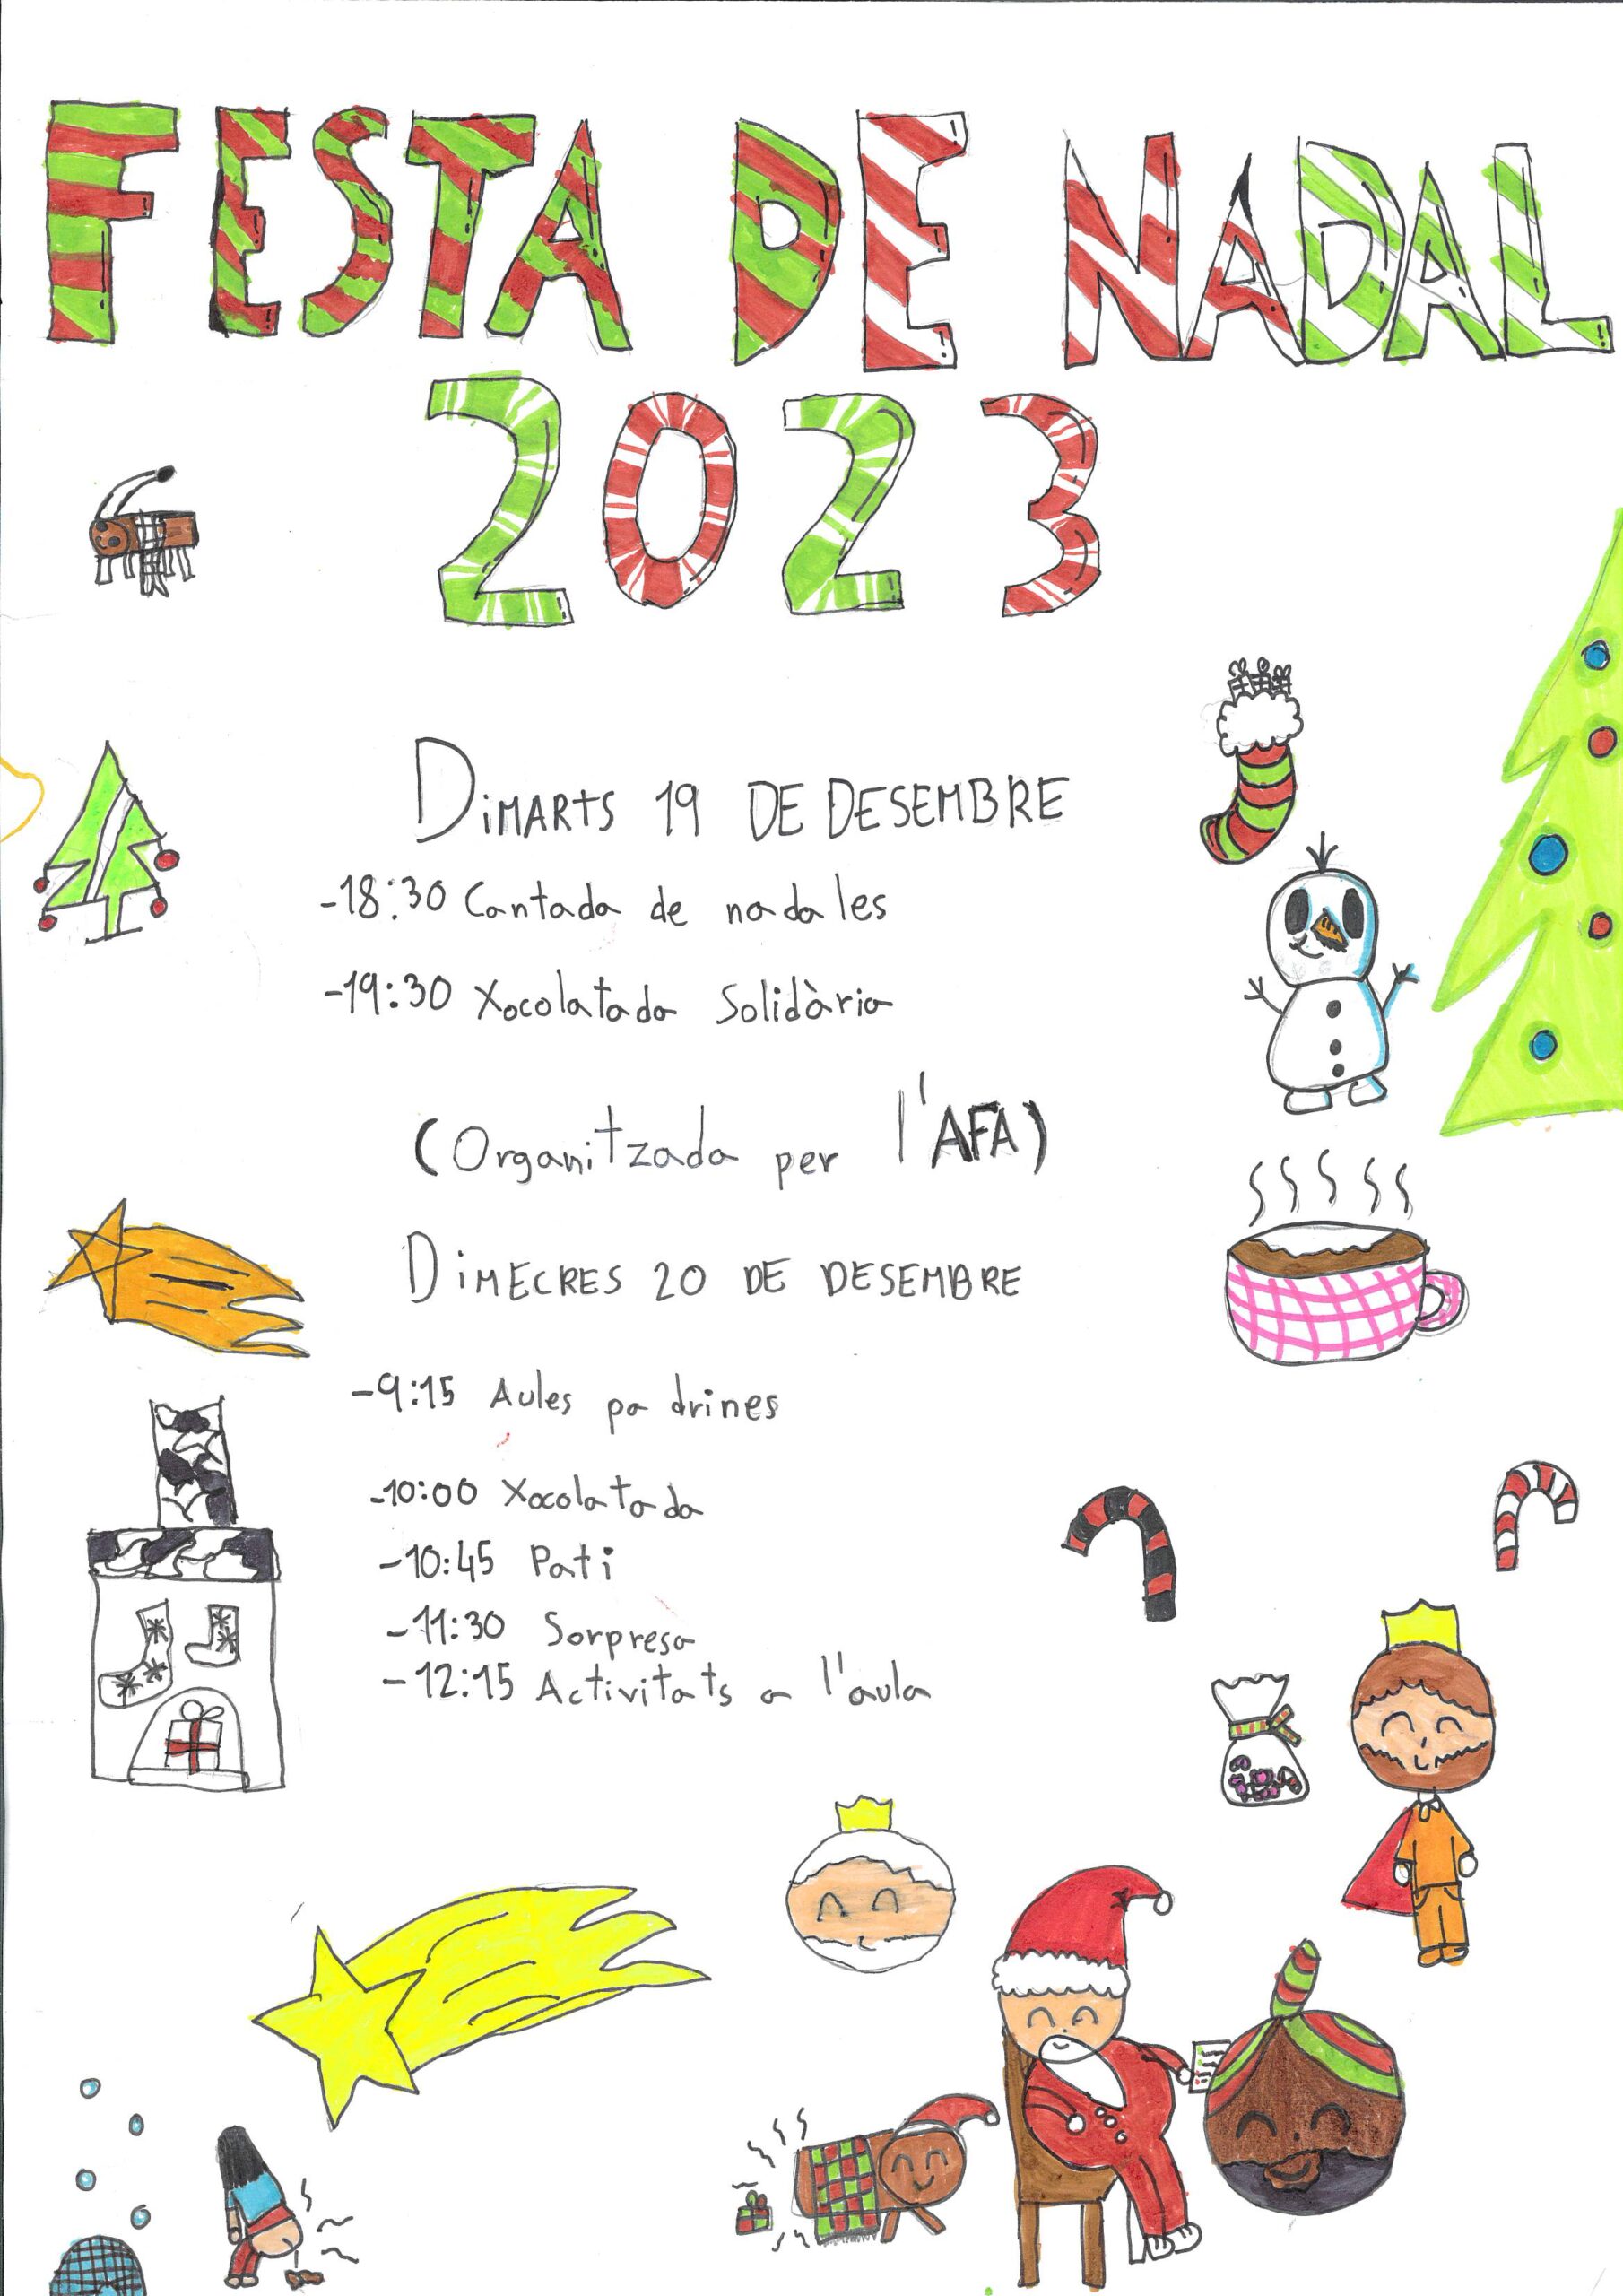 FESTA DE NADAL
2023
DIMARTS 19 DE DESEMBRE
-18:30 Cantada de nadales
-19:30 Xocolatada Solidària
(Organitzada per l'AFA)
DIMECRES 20 DE DESEMBRE
-9:15 Aules padrines
-10:00 Xocolatada
-10:45 Pati
-11:30 Sorpresa
-12:15 Activitats a l'aula